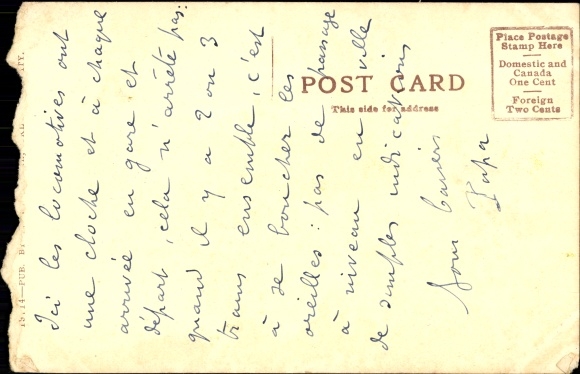 POST CARD
This side for address
Place Postage
Stamp Here
Domestic and
Canada
One Cent
Foreign
Two Cents
Ici les locomotives ont
une cloche et à chaque
arrivée en gare et
départ, cela n'arrête pas:
quand il y a 2 ou 3
trains ensemble, c'est
à se boucher les
oreilles: pas de passage
à niveau en ville
de simples indications
baisers
Papa
15714—PUB. BY